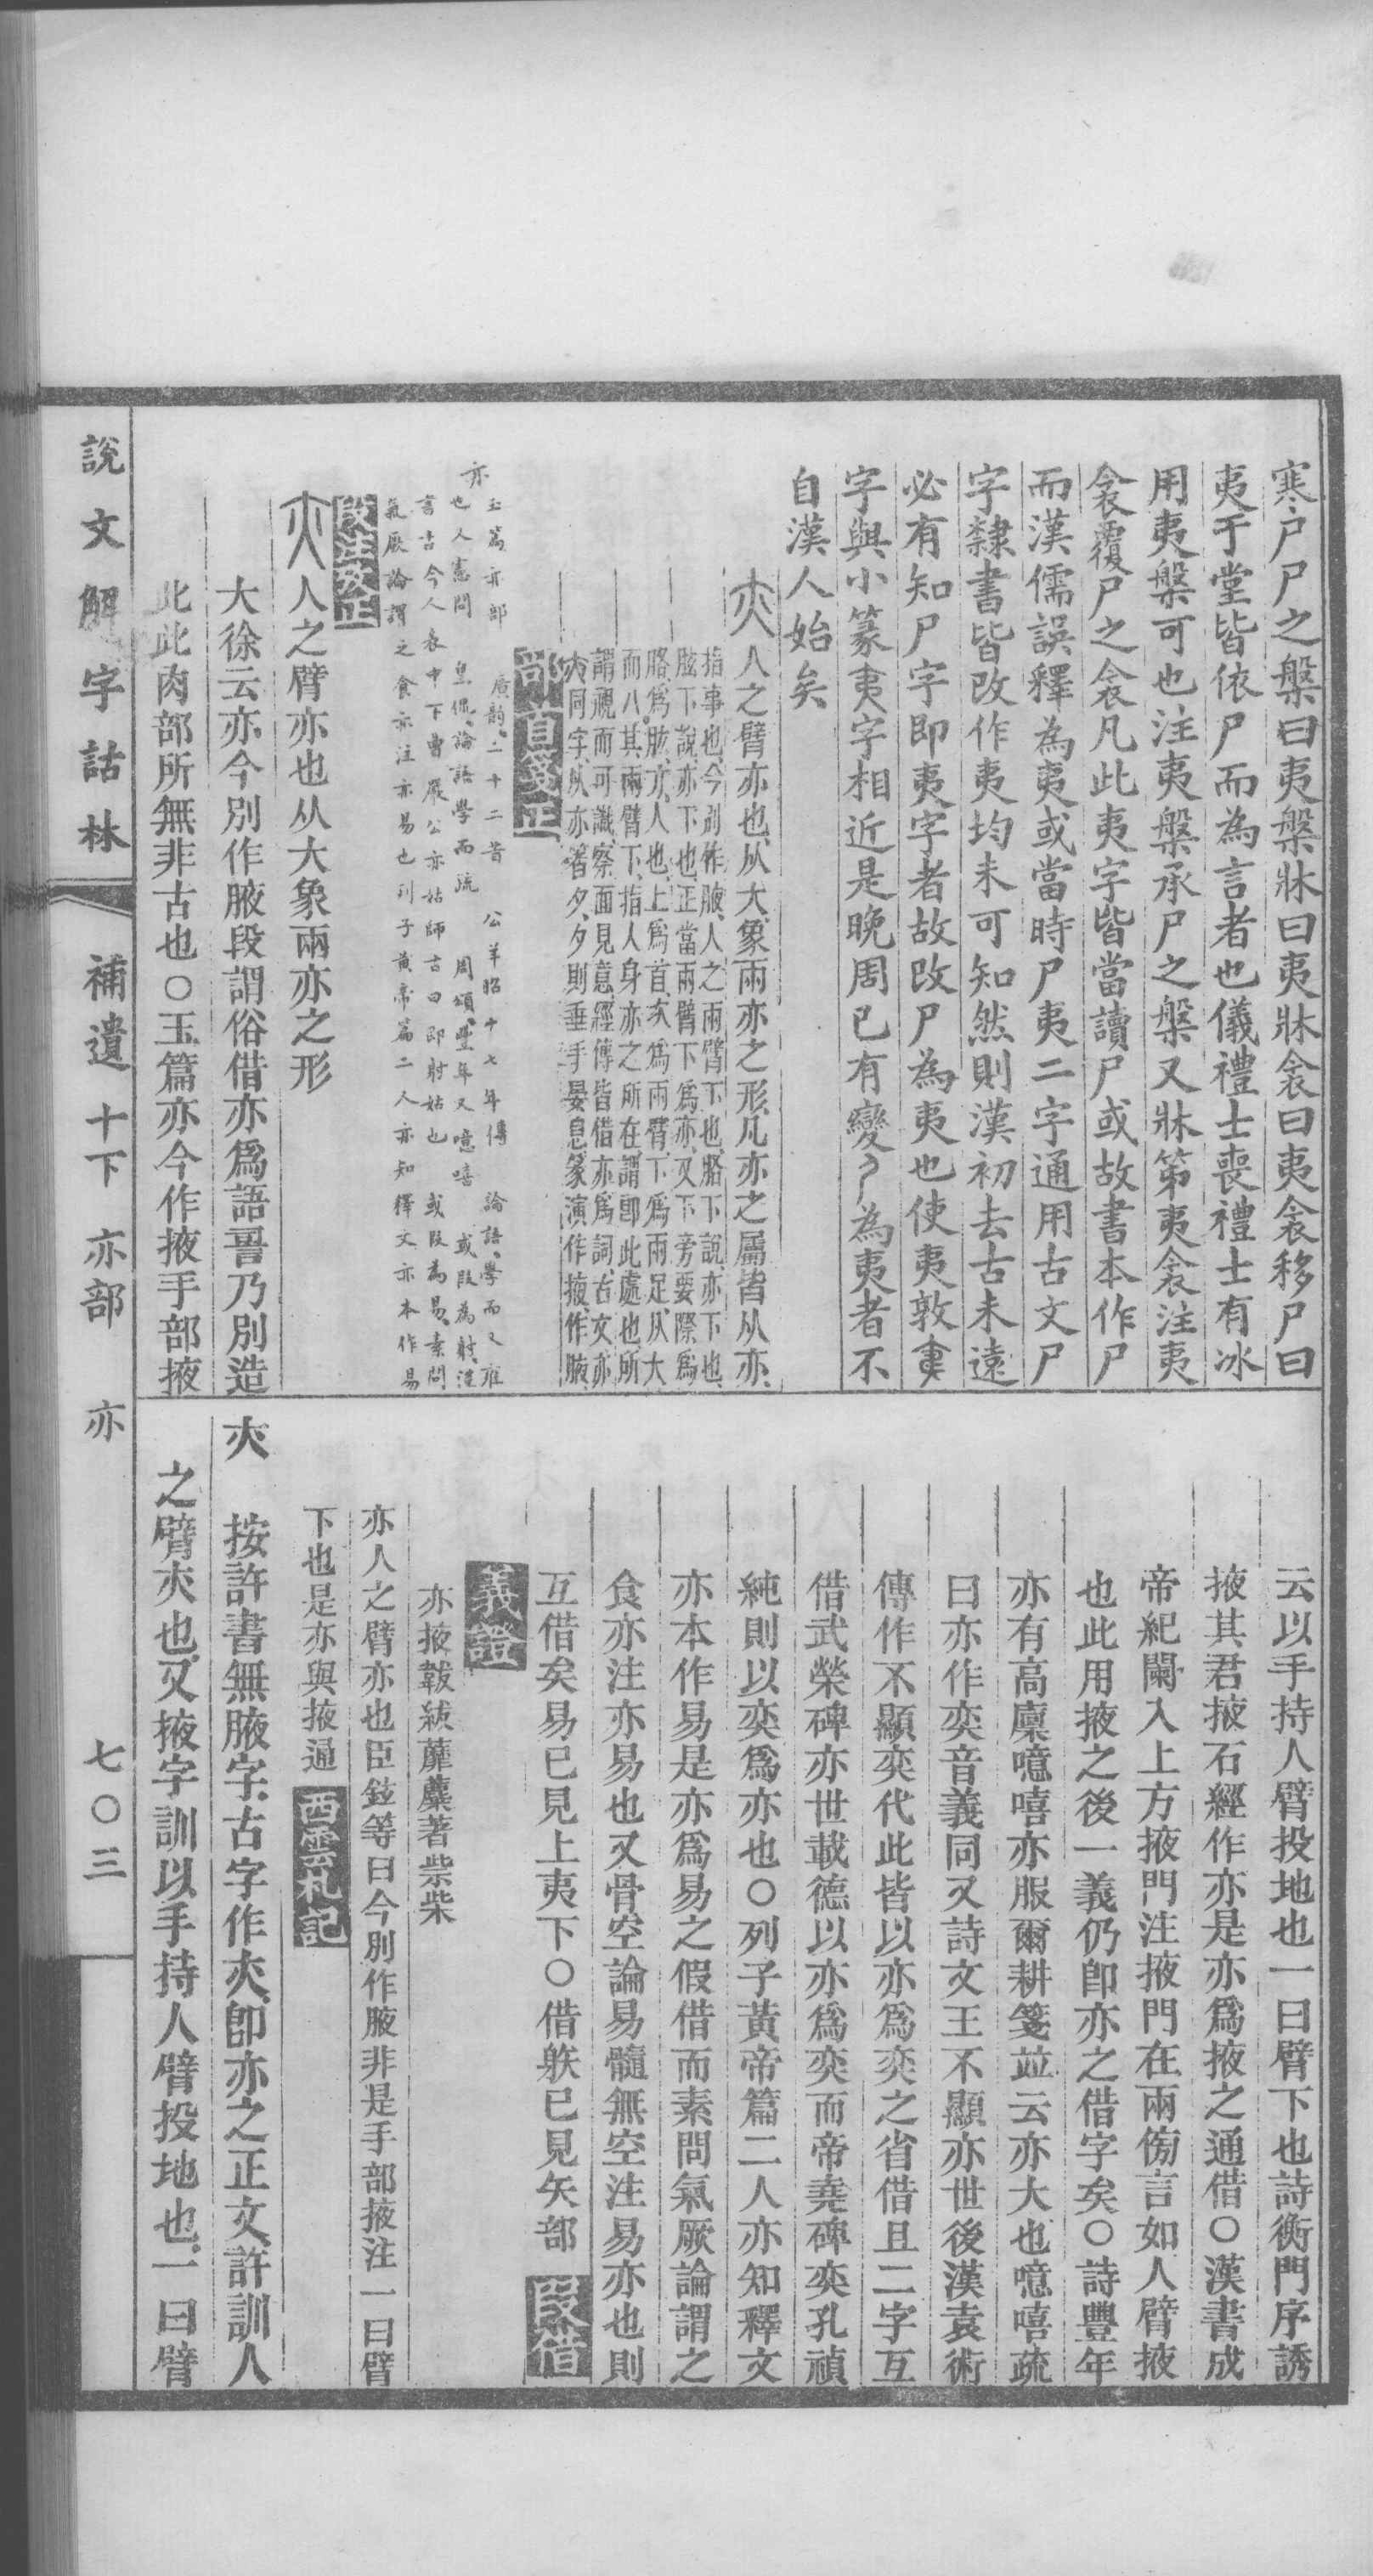 寒尸尸之槃曰夷槃牀曰夷牀衾曰夷衾移尸曰
夷于堂皆依尸而為言者也儀禮士喪禮士有冰
用夷槃可也注夷槃承尸之槃又牀第夷衾注夷
衾覆尸之衾凡此夷字皆當讀尸或故書本作尸
而漢儒誤釋為夷或當時尸夷二字通用古文尸
字隸書皆改作夷均未可知然則漢初去古未遠
必有知尸字即夷字者故改尸為夷也使夷敦
字與小篆夷字相近是晚周已有變尸為夷者不
自漢人始矣
亦人之臂亦也从大象兩亦之形凡亦之屬皆从亦
指事也今別作腋人之兩臂下也胳下說亦下也
胠下說亦下也正當兩臂下為亦又下旁要際爲
胳爲肱亦人也上爲首大爲兩臂下爲兩足从大
而八其兩臂下指人身亦之所在謂即此處也所
謂視而可識察而見意經傳皆借亦爲詞古文亦
夾同字从亦者夕夕則垂手晏息篆演作掖作腋
亦
玉篇亦部 廣韵二十二昔 公羊昭十七年傳 論語學而又雍
也人憲問 皇侃論語學而疏 周頌豐年又噫嘻 或叚為射漢
書古今人表中下曹嚴公亦姑師古曰即射姑也 或叚為易素問
氣厥論謂之食亦注亦易也列子黃帝篇二人亦知釋文亦本作易
段注攷正
亦人之臂亦也从大象兩亦之形
大徐云亦今別作腋段謂俗借亦爲語䛐乃別造
此此肉部所無非古也〇玉篇亦今作掖手部掖
云以手持人臂投地也一曰臂下也詩衡門序誘
掖其君掖石經作亦是亦爲掖之通借〇漢書成
帝紀闌入上方掖門注掖門在兩傍言如人臂掖
也此用掖之後一義仍卽亦之借字矣〇詩豐年
亦有高廩噫嘻亦服爾耕箋竝云亦大也噫嘻疏
曰亦作奕音義同又詩文王不顯亦世後漢袁術
傳作不顯奕代此皆以亦爲奕之省借且二字互
借武榮碑亦世載德以亦爲奕而帝堯碑奕孔禎
純則以奕爲亦也〇列子黃帝篇二人亦知釋文
亦本作易是亦爲易之假借而素問氣厥論謂之
食亦注亦易也又骨空論易髓無空注易亦也則
互借矣易已見上夷下〇借躾已見矢部
義證
亦掖韍紱蘼蘪著祡柴
亦人之臂亦也臣鉉等曰今別作腋非是手部掖注一曰臂
下也是亦與掖通
西雲札記
亦 按許書無腋字古字作亦卽亦之正文許訓人
之臂亦也又掖字訓以手持人臂投地也一曰臂
說文解字詁林 補遺 十下 亦部 亦 七〇三